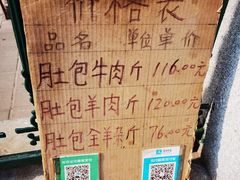 价格表
品名 单位单价
肚包牛肉斤116.00元
肚包羊肉斤120.00元
肚包全羊斤76.00元